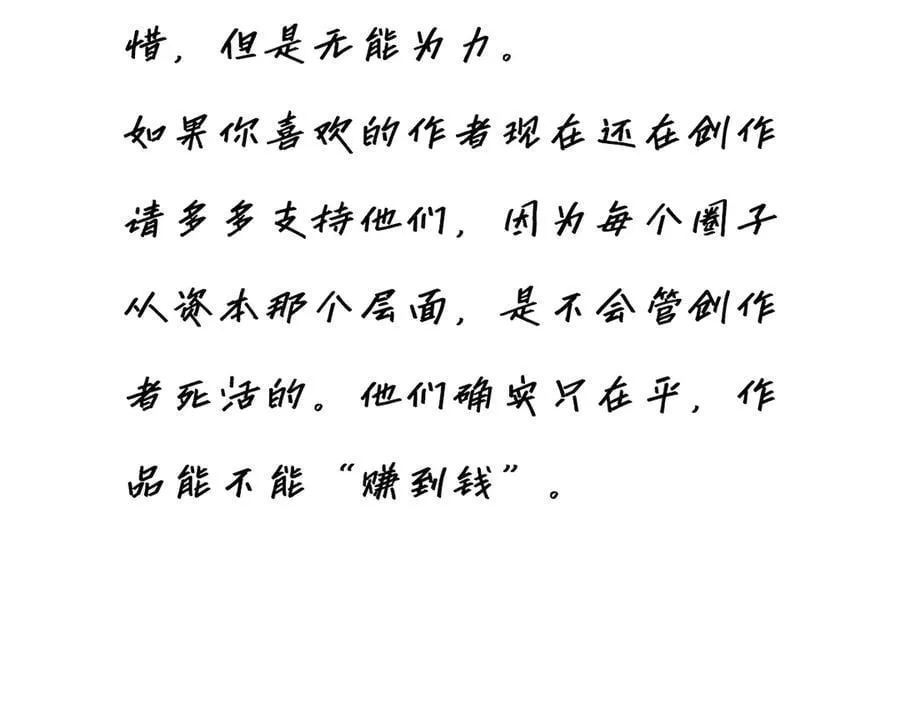 惜，但是无能为力。
如果你喜欢的作者现在还在创作
请多多支持他们，因为每个圈子
从资本那个层面，是不会管创作
者死活的。他们确实只在乎，作
品能不能“赚到钱”。